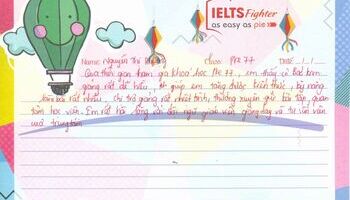 IELTS Fighter
as easy as pie
Name: Nguyễn Thị Class: PRE 77 Date: / /
Qua thời gian tham gia khoá học PRE 77, em thấy cô Bảo Kim
giảng rất dễ hiểu, giúp em tăng được kiến thức, kỹ năng
làm bài rất nhiều, chị trợ giảng rất nhiệt tình, thường xuyên giúp bài tập, quan
tâm học viên. Em rất hài lòng với đội ngũ giáo viên giảng dạy và tư vấn viên
của trung tâm